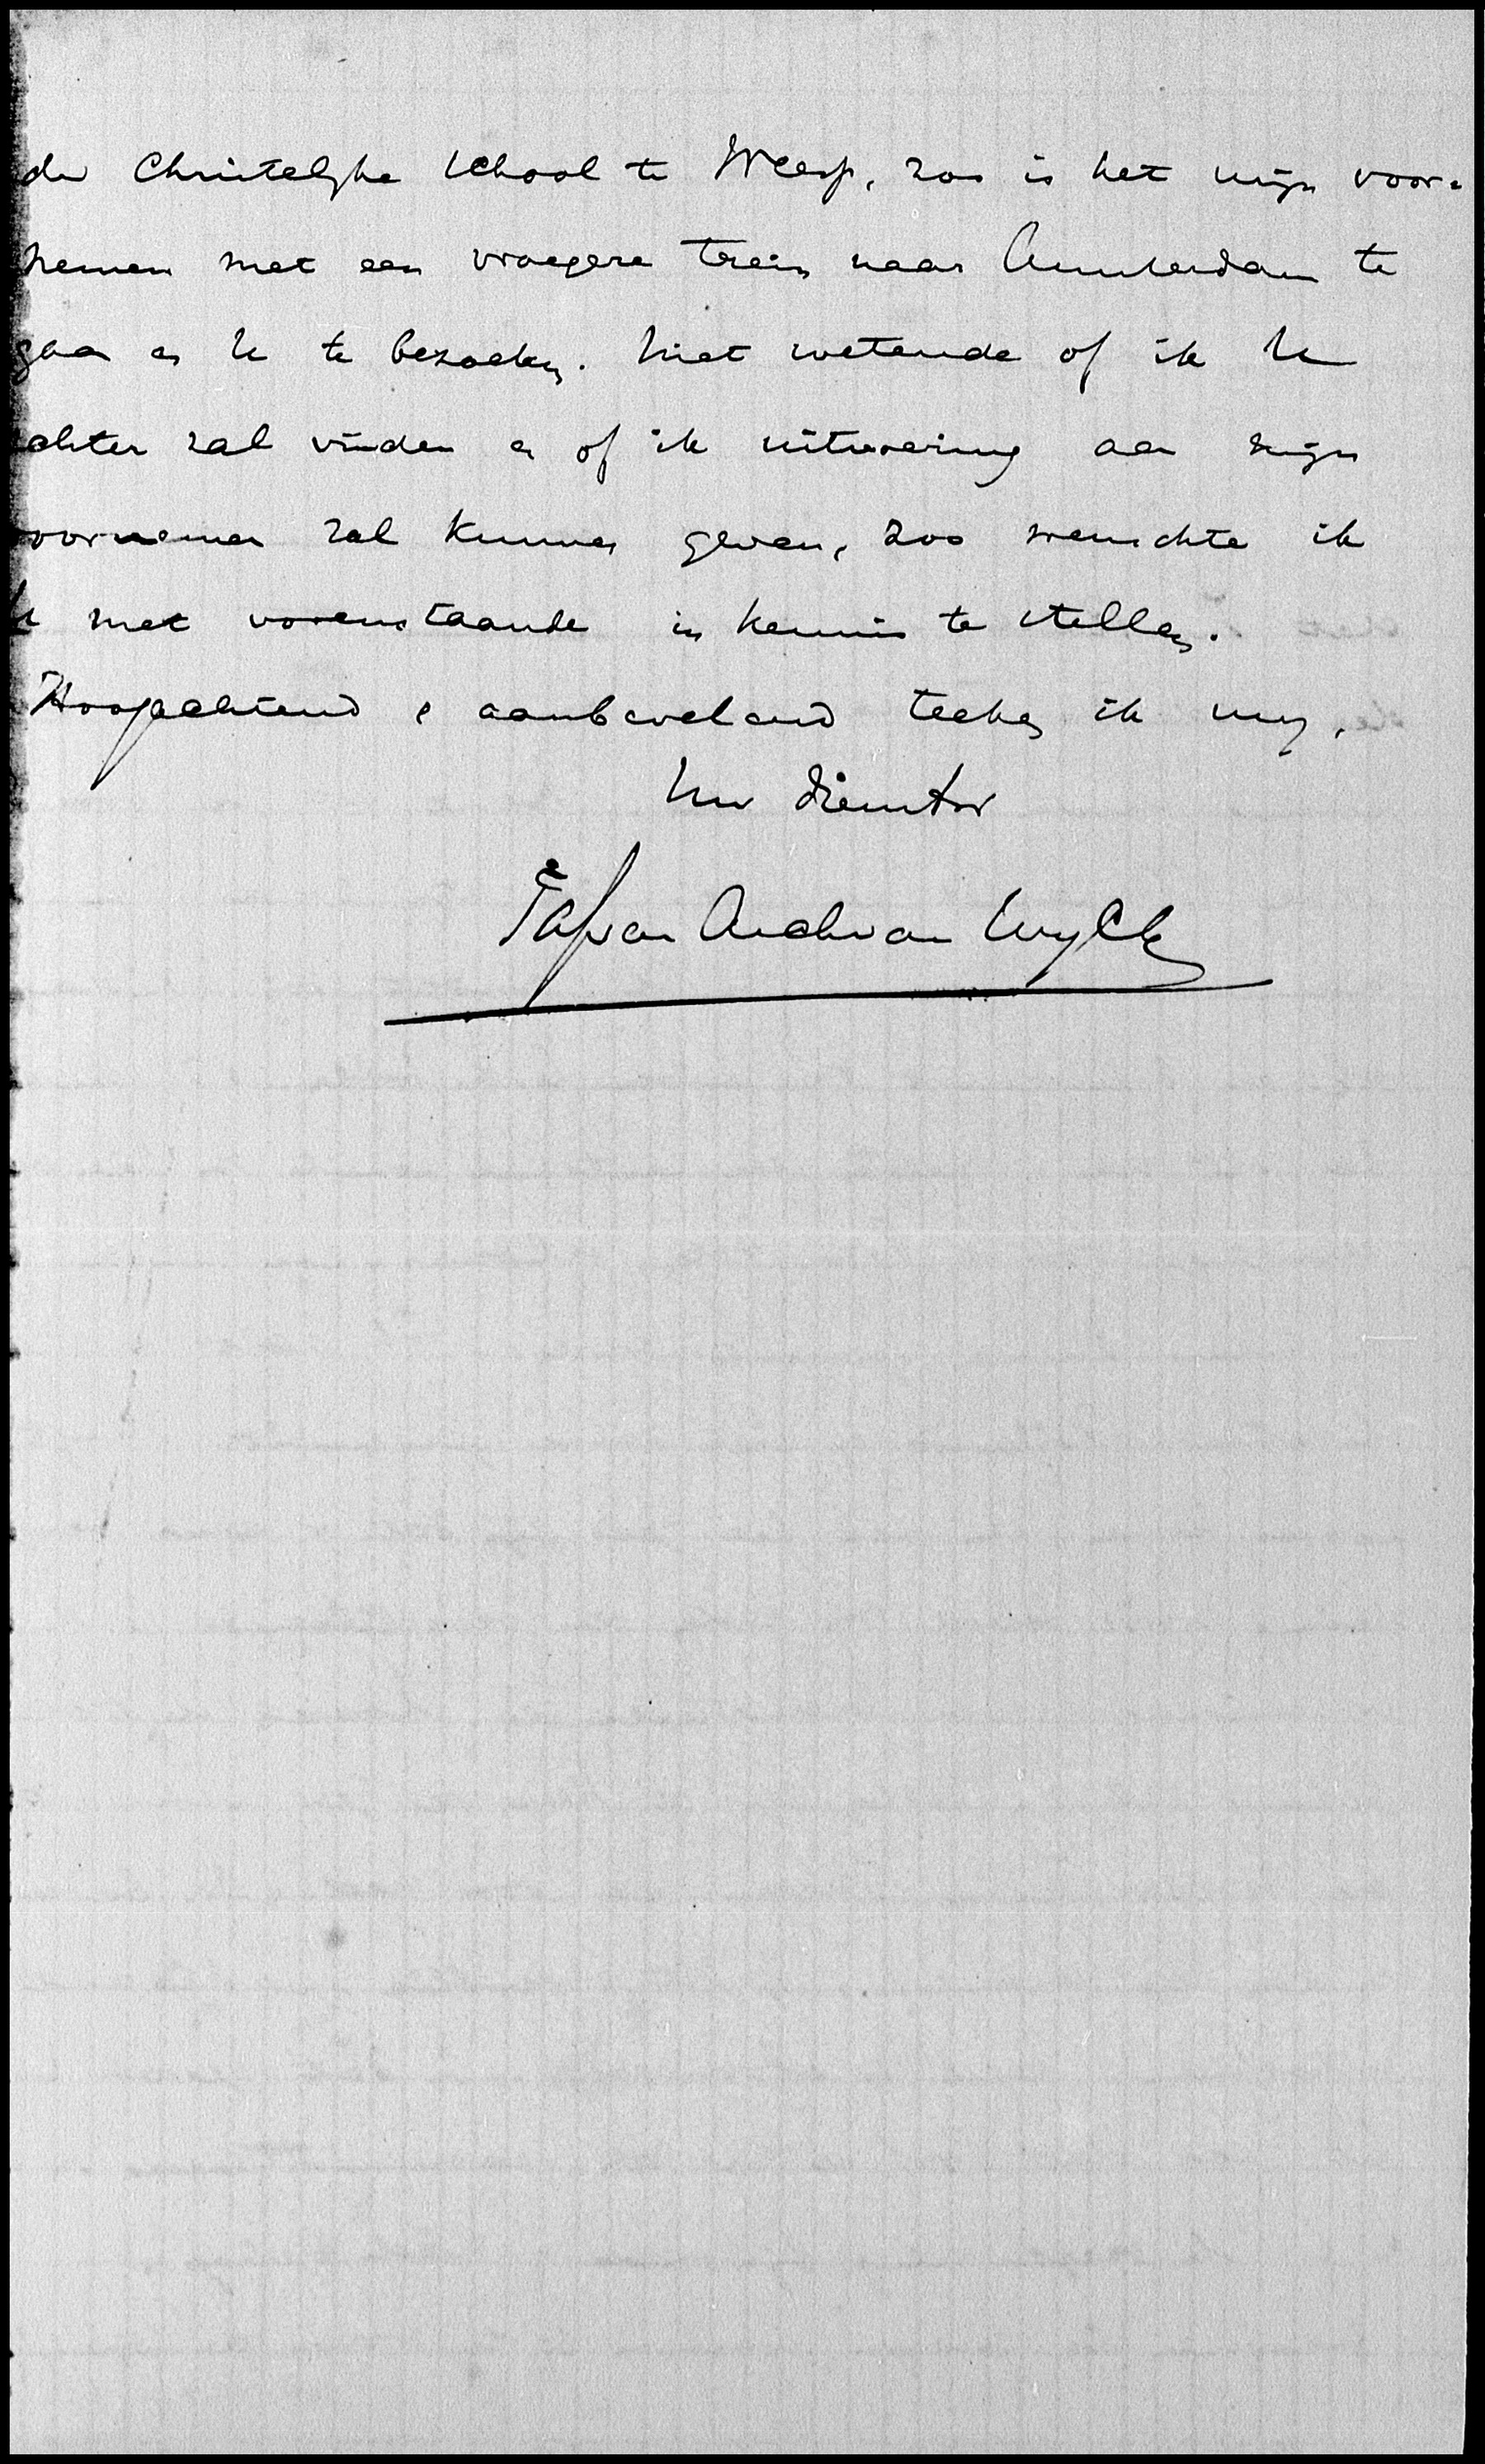 der Christelijke School te Weesp, zoo is het mijn voor=
nemen met een vroegere trein naar Amsterdam te
gaan en U te bezoeken. Niet wetende of ik U
echter zal vinden en of ik uitvoering aan mijn
voornemen zal kunnen geven, zoo wenschte ik
U met vorenstaande in kennis te stellen.
Hoogachtend & aanbevelend teeken ik mij,
Uw dienaar
van Andel van Wijck